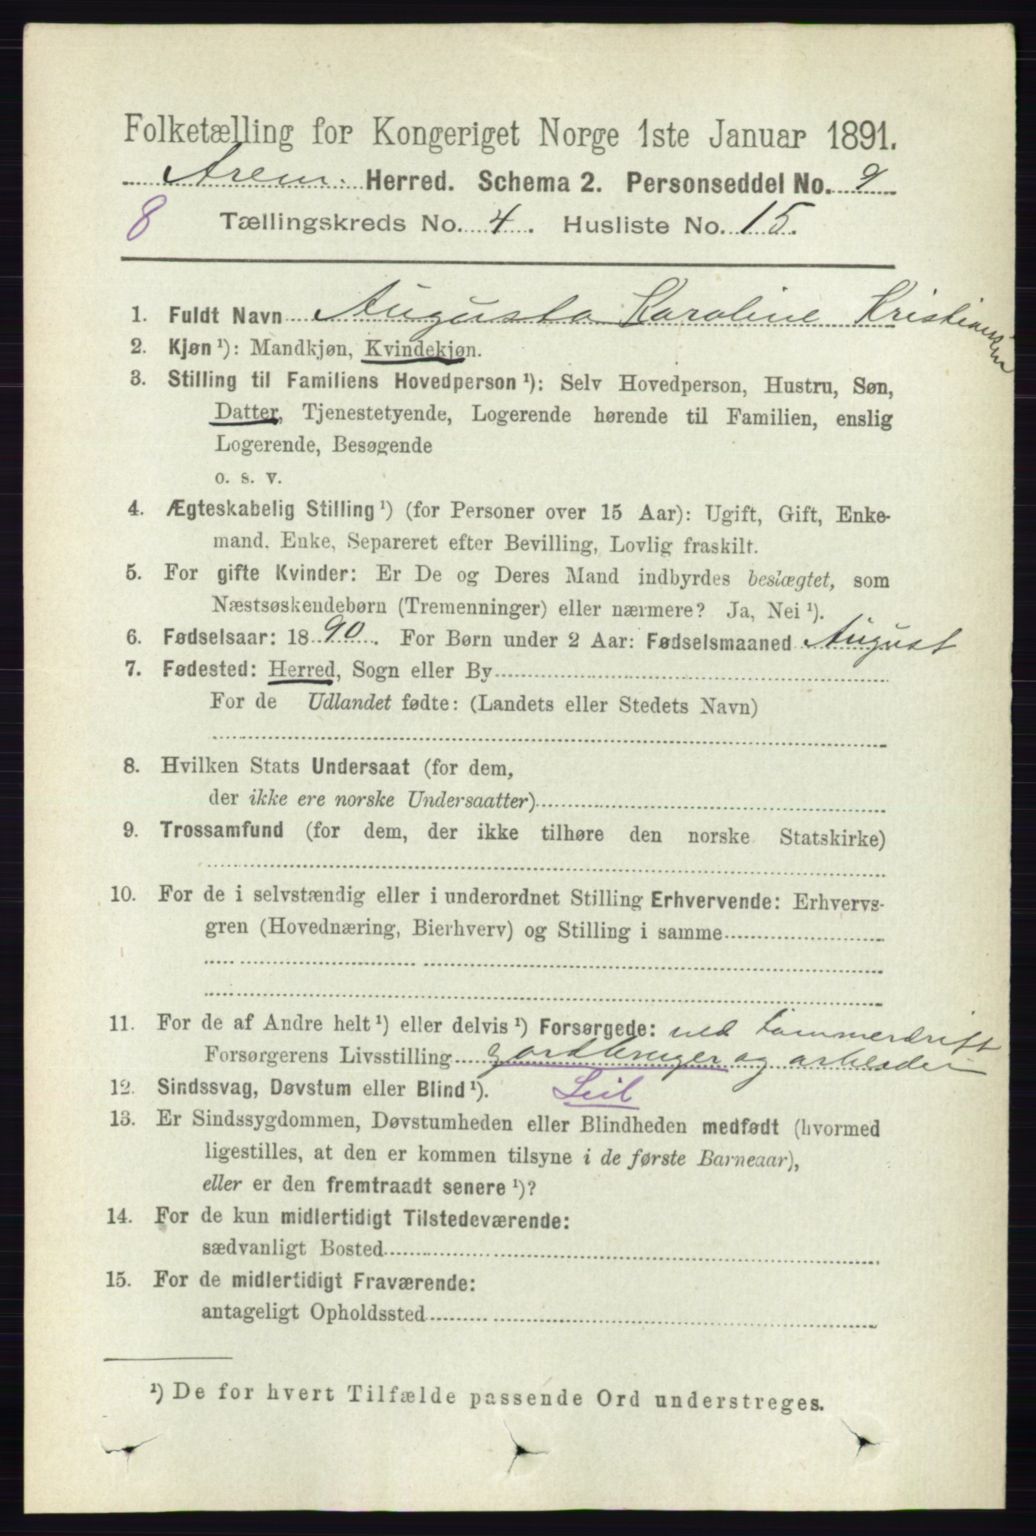 Folketælling for Kongeriget Norge 1ste Januar 1891.
Arem. Herred. Schema 2. Personseddel No. 9
8 Tællingskreds No. 4. Husliste No. 15.
1. Fuldt Navn Augusta Karoline Kristiansen
2. Kjøn ¹): Mandkjøn, Kvindekjøn.
3. Stilling til Familiens Hovedperson ¹): Selv Hovedperson, Hustru, Søn,
Datter, Tjenestetyende, Logerende hørende til Familien, enslig
Logerende, Besøgende
o. s. v.
4. Ægteskabelig Stilling ¹) (for Personer over 15 Aar): Ugift, Gift, Enke-
mand, Enke, Separeret efter Bevilling, Lovlig fraskilt.
5. For gifte Kvinder: Er De og Deres Mand indbyrdes beslægtet, som
Næstsøskendebørn (Tremenninger) eller nærmere? Ja, Nei ¹).
6. Fødselsaar: 1890. For Børn under 2 Aar: Fødselsmaaned August
7. Fødested: Herred, Sogn eller By
For de Udlandet fødte: (Landets eller Stedets Navn)
8. Hvilken Stats Undersaat (for dem,
der ikke ere norske Undersaatter)
9. Trossamfund (for dem, der ikke tilhøre den norske Statskirke)
10. For de i selvstændig eller i underordnet Stilling Erhvervende: Erhvervs-
gren (Hovednæring, Bierhverv) og Stilling i samme
11. For de af Andre helt ¹) eller delvis ¹) Forsørgede: ved tømmerdrift
Forsørgerens Livsstilling gardbruger og arbeider
12. Sindssvag, Døvstum eller Blind ¹). Leil
13. Er Sindssygdommen, Døvstumheden eller Blindheden medfødt (hvormed
ligestilles, at den er kommen tilsyne i de første Barneaar),
eller er den fremtraadt senere ¹)?
14. For de kun midlertidigt Tilstedeværende:
sædvanligt Bosted
15. For de midlertidigt Fraværende:
antageligt Opholdssted
¹) De for hvert Tilfælde passende Ord understreges.